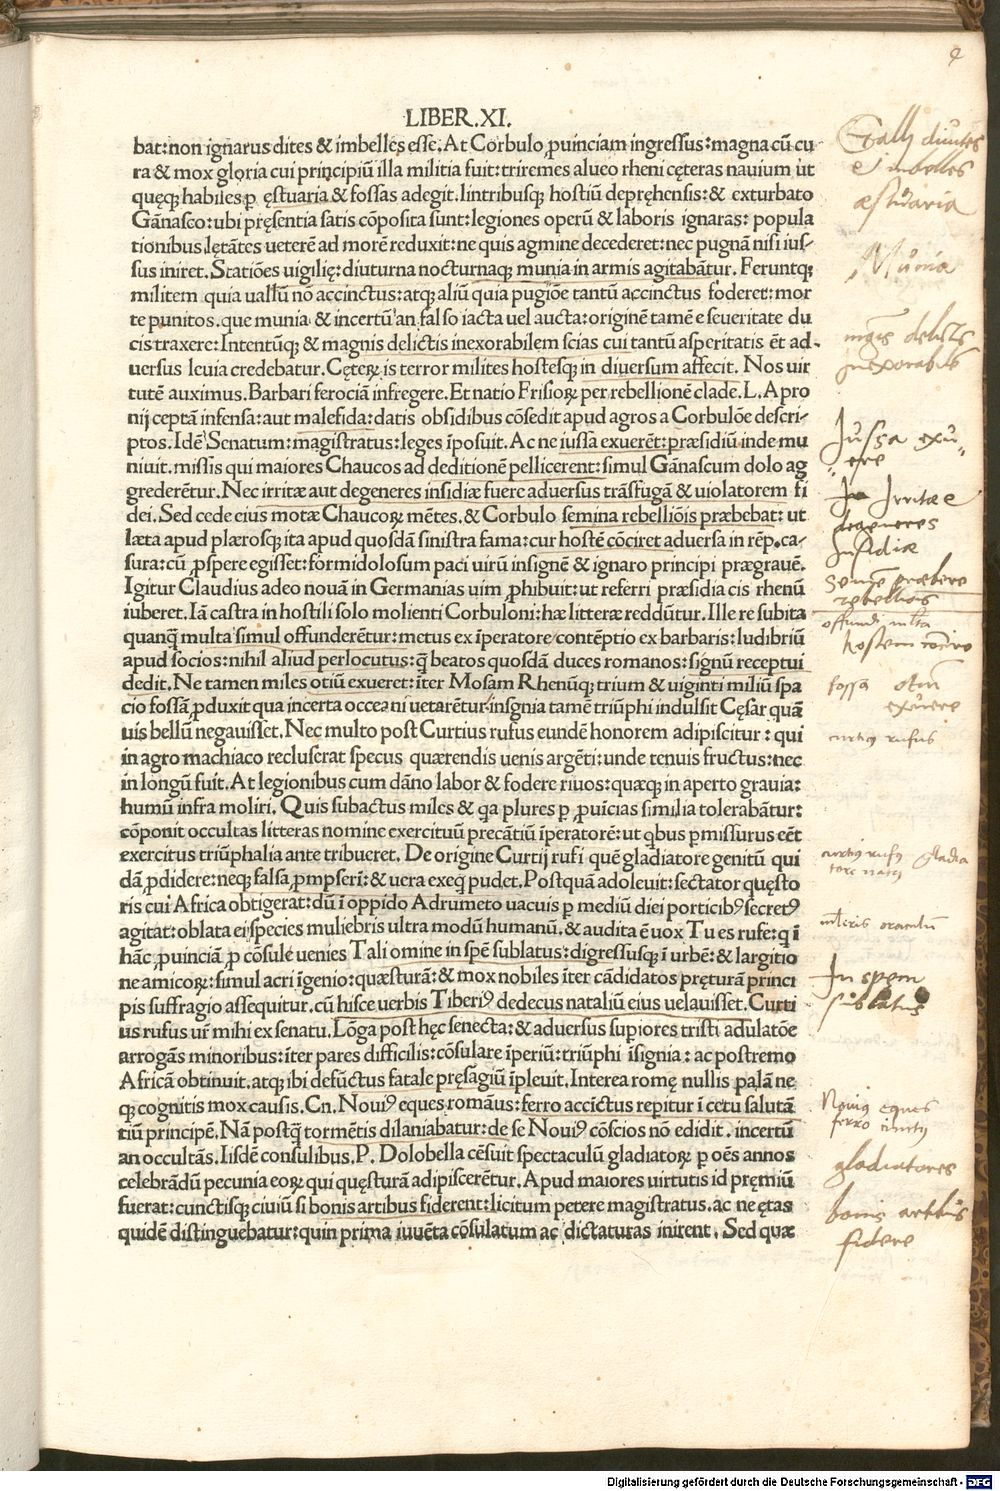 LIBER.XI.
bat:non ignarus dites & imbelles esse.At Corbulo ꝓuinciam ingressus:magna cū cu
ra & mox gloria cui principiū illa militia fuit:triremes alueo rheni cęteras nauium ut
quęqȝ habiles p ęstuaria & fossas adegit.lintribusqȝ hostiū depręhensis:& exturbato
Gānasco:ubi pręsentia satis cōposita sunt:legiones operū & laboris ignaras: popula
tionibus lętātes ueterē ad morē reduxit:ne quis agmine decederet:nec pugnā nisi ius-
sus iniret.Statiōes uigilię:diuturna nocturnaqȝ munia in armis agitabātur. Feruntqȝ
militem quia uallū nō accinctus:atqȝ aliū quia pugiōe tantū accinctus foderet: mor
te punitos.que munia & incertū an falso iacta uel aucta:originē tamē e seueritate du
cis traxere:Intentūqȝ & magnis delictis inexorabilem scias cui tantū asperitatis ēt ad-
uersus leuia credebatur.Cęterꝝ is terror milites hostesqȝ in diuersum affecit. Nos uir
tutē auximus.Barbari ferociā infregere.Et natio Frisioꝝ per rebellionē clade.L.Apro
nij ceptā infensa:aut malefida:datis obsidibus cōsedit apud agros a Corbulōe descri-
ptos.Idē Senatum:magistratus:leges īposuit.Ac ne iussa exuerēt:præsidiū inde mu
niuit.missis qui maiores Chaucos ad deditionē pellicerent:simul Gānascum dolo ag
grederētur.Nec irritæ aut degeneres insidiæ fuere aduersus trāsfugā & uiolatorem fi
dei.Sed cede eius motæ Chaucoꝝ mētes.& Corbulo semina rebelliōis præbebat: ut
læta apud plærosqȝ ita apud quosdā sinistra fama:cur hostē cōciret aduersa in rēp.ca-
sura:cū ꝓspere egisset:formidolosum paci uirū insignē & ignaro principi prægrauē.
Igitur Claudius adeo nouā in Germanias uim ꝓhibuit:ut referri præsidia cis rhenū
iuberet.Iā castra in hostili solo molienti Corbuloni:hæ litteræ reddūtur.Ille re subita
quanqꝫ multa simul offunderētur:metus ex īperatore contēptio ex barbaris:ludibriū
apud socios:nihil aliud perlocutus:qꝫ beatos quosdā duces romanos:signū receptui
dedit.Ne tamen miles otiū exueret:īter Mosam Rhenūqȝ trium & uiginti miliū spa
cio fossā ꝓduxit qua incerta occeani uetarētur.insgnia tamē triūphi indulsit Cęsar quā
uis bellū negauisset.Nec multo post Curtius rufus eundē honorem adipiscitur: qui
in agro machiaco recluserat specus quærendis uenis argēti:unde tenuis fructus:nec
in longū fuit.At legionibus cum dāno labor & fodere riuos:quæqȝ in aperto grauia:
humū infra moliri. Quis subactus miles & qa plures p ꝓuīcias similia tolerabātur:
cōponit occultas litteras nomine exercituū precātiū īperatorē:ut qbus pmissurus eēt
exercitus triūphalia ante tribueret. De origine Curtij rufi quē gladiatore genitū qui
dā ꝓdidere:neqȝ falsa ꝓmpserī:& uera exeq pudet.Postquā adoleuit:sectator quęsto
ris cui Africa obtigerat:dū ī oppido Adrumeto uacuis p mediū diei porticibꝰ secretꝰ
agitat:oblata ei species muliebris ultra modū humanū.& audita ē uox Tu es rufe:q ī
hāc ꝓuinciā ꝓ cōsule uenies Tali omine in spē sublatus:digressusqȝ ī urbē:& largitio
ne amicoꝝ:simul acri īgenio:quæsturā:& mox nobiles īter cādidatos pręturā princi
pis suffragio assequitur.cū hisce uerbis Tiberiꝰ dedecus nataliū eius uelauisset.Curti
us rufus ur mihi ex senatu.Lōga post hęc senecta:& aduersus supiores tristi adulatōe
arrogās minoribus:īter pares difficilis:cōsulare īperiū:triūphi īsignia: ac postremo
Africā obtinuit.atqȝ ibi defūctus fatale pręsagiū īpleuit.Interea romę nullis palā ne
qȝ cognitis mox causis.Cn.Nouiꝰ eques romānus:ferro accīctus repitur ī cetu salutā
tiū principē.Nā postqꝫ tormētis dilaniabatur:de se Nouiꝰ cōscios nō edidit. incertū
an occultās.Iisdē consulibus.P. Dolobella cēsuit spectaculū gladiatoꝝ p oēs annos
celebrādū pecunia eoꝝ qui quęsturā adipiscerētur.Apud maiores uirtutis id pręmiū
fuerat:cunctisqȝ ciuiū si bonis artibus fiderent:licitum petere magistratus.ac ne ętas
quidē distinguebatur:quin prima iuuēta cōsulatum ac dictaturas inirent. Sed quæ
Galli diuites
& imbelles
æstuaria
Munia
magis delictis
inexorabilis
Iussa exu
ere
Irritæ
degeneres
Insidiæ
præbere
rebellios
offundi multa
hostem concire
fossa otiū
exuere
curtiꝰ rufus
curtiꝰ rufꝰ gladia
tore natꝰ
mulieris oraculū
In spem
sublatus
Nouiꝰ eques
ferro cinctꝰ
gladiatores
bonis artibus
fidere
Digitalisierung gefördert durch die Deutsche Forschungsgemeinschaft - DFG